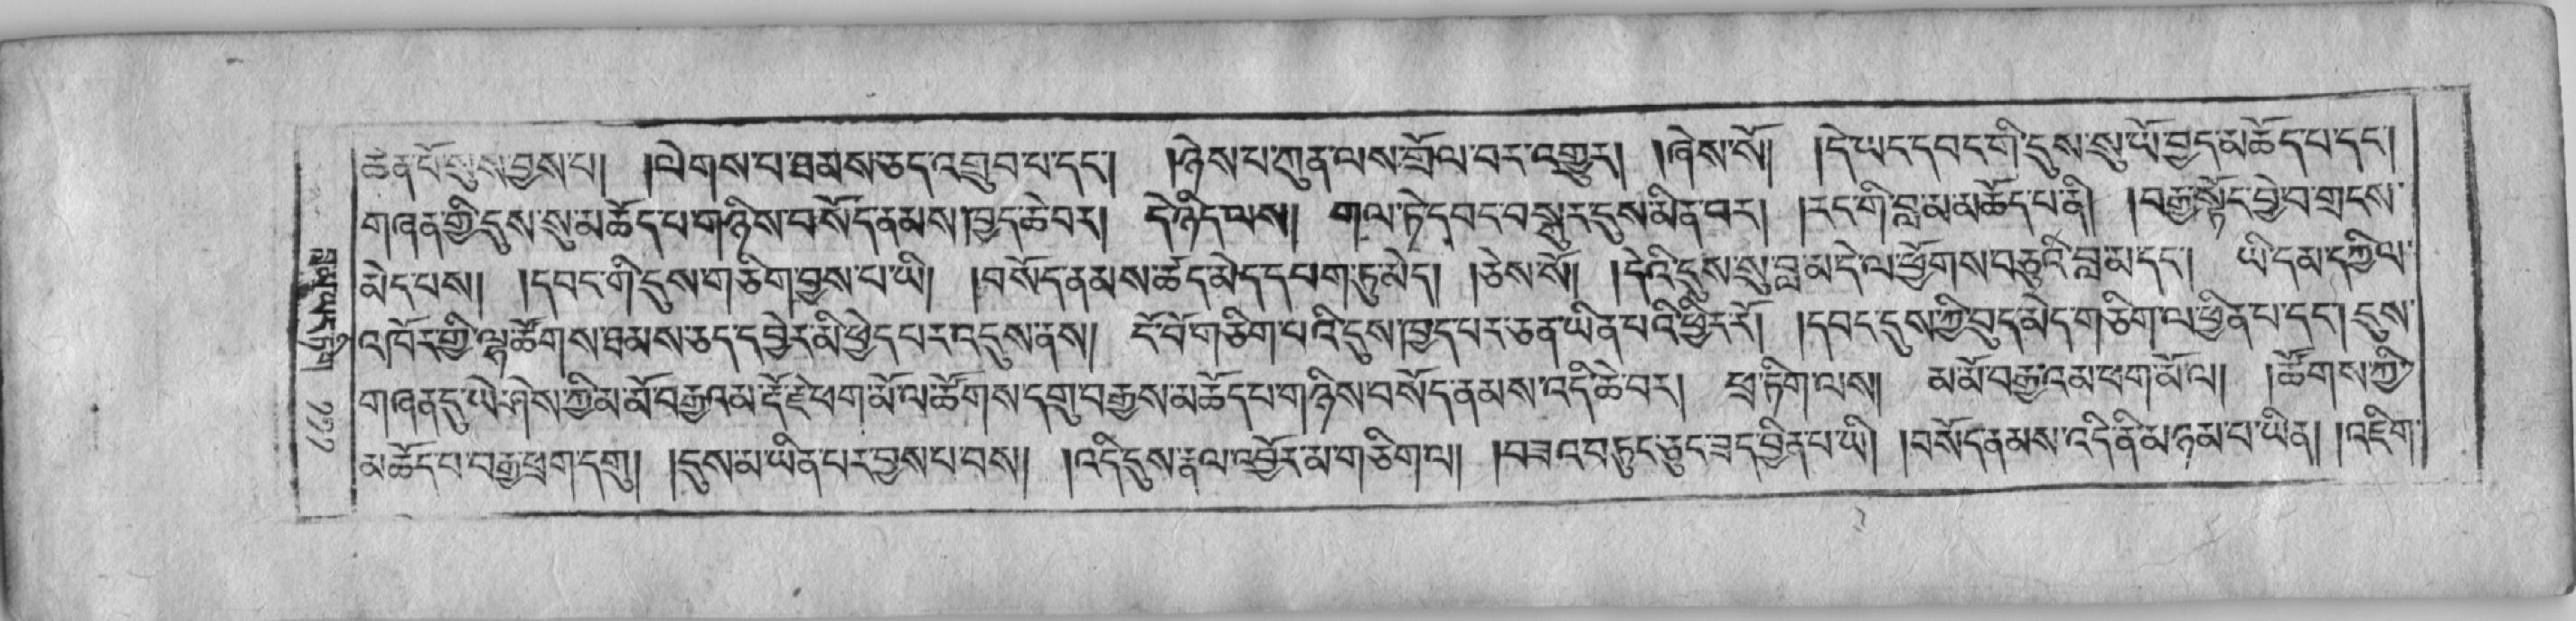 ཆེན་པོ་སུས་བྱས་པ། །ལེགས་པ་ཐམས་ཅད་འགྲུབ་པ་དང་། །ཉེས་པ་ཀུན་ལས་གྲོལ་བར་འགྱུར། །ཞེས་སོ། །དེ་ཡང་དབང་གི་དུས་སུ་ཡོ་བྱད་མཆོད་པ་དང་།
གཞན་གྱི་དུས་སུ་མཆོད་པ་གཉིས་བསོད་ནམས་ཁྱད་ཆེ་བར། དེ་ཉིད་ལས། གལ་ཏེ་དབང་བསྐུར་དུས་མིན་པར། །རང་གི་བླ་མ་མཆོད་པ་ནི། །བརྒྱ་སྟོང་བྱེ་བ་གྲངས་
མེད་པས། །དབང་གི་དུས་གཅིག་བྱས་པ་ཡི། །བསོད་ནམས་ཚད་མེད་དཔག་ཏུ་མེད། །ཅེས་སོ། །དེའི་དུས་སུ་བླ་མ་དེ་ལ་ཕྱོགས་བཅུའི་བླ་མ་དང་། ཡི་དམ་དཀྱིལ་
འཁོར་གྱི་ལྷ་ཚོགས་ཐམས་ཅད་དབྱེར་མི་ཕྱེད་པར་འདུས་ནས། ངོ་བོ་གཅིག་པའི་དུས་ཁྱད་པར་ཅན་ཡིན་པའི་ཕྱིར་རོ། །དབང་དུས་ཀྱི་བུད་མེད་གཅིག་ལ་ཕྱིན་པ་དང་། དུས་
གཞན་དུ་ཡེ་ཤེས་ཀྱི་མ་མོ་བརྒྱའམ་རྡོ་རྗེ་ཕག་མོ་ལ་ཚོགས་དགུ་བརྒྱས་མཆོད་པ་གཉིས་བསོད་ནམས་འདི་ཆེ་བར། ཕྲ་ཏིག་ལས། མ་མོ་བརྒྱ་འམ་ཕག་མོ་ལ། །ཚོགས་ཀྱི་
མཆོད་པ་བརྒྱ་ཕྲག་དགུ། །དུས་མ་ཡིན་པར་བྱས་པ་བས། །འདི་དུས་རྣལ་འབྱོར་མ་གཅིག་ལ། །བཟའ་བཏུང་ཅུང་ཟད་བྱིན་པ་ཡི། །བསོད་ནམས་འདི་ནི་མཉམ་པ་ཡིན། །འཇིག་